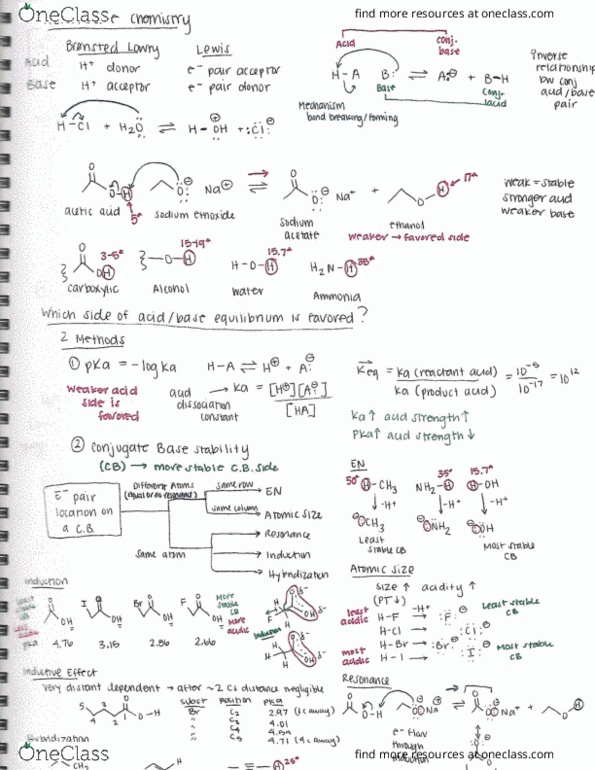 OneClass
find more resources at oneclass.com
chemistry
Brønsted Lowry
Lewis
Acid
H⁺ donor
e⁻ pair acceptor
Base
H⁺ acceptor
e⁻ pair donor
Acid
conj. base
H-A B: ⇌ A:⊖ + B-H
Base
conj. acid
Mechanism
bond breaking/forming
inverse
relationship
bw conj
acid/base
pair
H-Cl + H₂O ⇌ H-OH + :Cl:⊖
O
OH
O:⊖ Na⊕ ⇌ O:⊖ Na⁺ + O-H
17*
5*
acetic acid
sodium ethoxide
sodium
acetate
ethanol
weaker → favored side
weak = stable
stronger acid
weaker base
3-5*
15-19*
15.7*
35*
OH
-O-H
H-O-H
H₂N-H
carboxylic
Alcohol
water
Ammonia
Which side of acid/base equilibrium is favored?
2 Methods
① pKa = -log Ka
H-A ⇌ H⊕ + A:⊖
weaker acid
side is
favored
acid
dissociation
constant
→ Ka = [H⊕][A:⊖]
[HA]
Keq = Ka (reactant acid) = 10⁻⁵ = 10¹²
Ka (product acid) 10⁻¹⁷
Ka↑ acid strength↑
PKa↑ acid strength↓
② Conjugate Base stability
(CB) → more stable C.B. side
E⁻ pair
location on
a C.B.
Different Atoms
(equal or no resonance)
same row
EN
same column
Atomic size
Same atom
Resonance
Induction
Hybridization
EN
50* H-CH₃
35*
NH₂-H
15.7*
H-OH
-H⁺
-H⁺
-H⁺
⊖CH₃
⊖NH₂
⊖OH
Least
stable CB
Most stable
CB
Atomic size
size ↑ acidity ↑
(PT↓)
least
acidic
-H⁺
H-F → :F:⊖
Least stable
CB
H-Cl → :Cl:⊖
H-Br → :Br:⊖
most
acidic
H-I → :I:⊖
Most stable
CB
Induction
Least
stable
CB
less
acidic
OH
I
OH
Br
OH
F
OH
More
stable
CB
more
acidic
pKa 4.76 3.15 2.86 2.66
Induction
Inductive Effect
very distant dependent → after ~2 C's distance negligible
5 4 3 2 1
O-H
subst position pKa
Br C₂ 2.97 (1 C away)
C₃ 4.01
C₄ 4.59
C₅ 4.71 (4 C away)
Resonance
O-H
O Na⊕ ⇌ O Na⁺ + O-H
e⁻ flow
through
Hybridization
CH₃
25*
OneClass
find more resources at oneclass.com